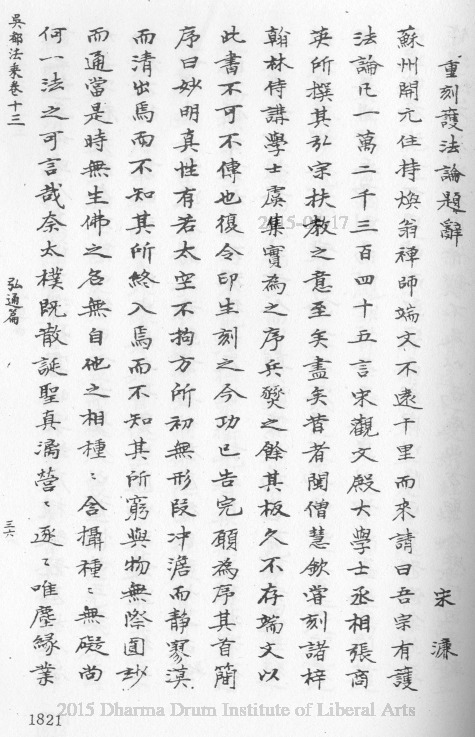 重刻護法論題辭
宋濂
蘇州開元住持煥翁禪師端文不遠千里而來請曰吾宗有護
法論凡一萬二千三百四十五言宋觀文殿大學士丞相張商
英所撰其弘宗扶教之意至矣盡矣昔者閩僧慧欽嘗刻諸梓
翰林侍講學士虞集實為之序兵燹之餘其板久不存端文以
此書不可不傳也復令印生刻之今功已告完願為序其首簡
序曰妙明真性有若太空不拘方所初無形段冲澹而靜寥漠
而清出焉而不知其所終入焉而不知其所窮與物無際圓妙
而通當是時無生佛之名無自他之相種〻含攝種〻無礙尚
何一法之可言哉奈太樸既散誕聖真漓營〻逐〻唯塵緣業
吳都法乘卷十三 弘通篇 三六
1821
2015 Dharma Drum Institute of Liberal Arts